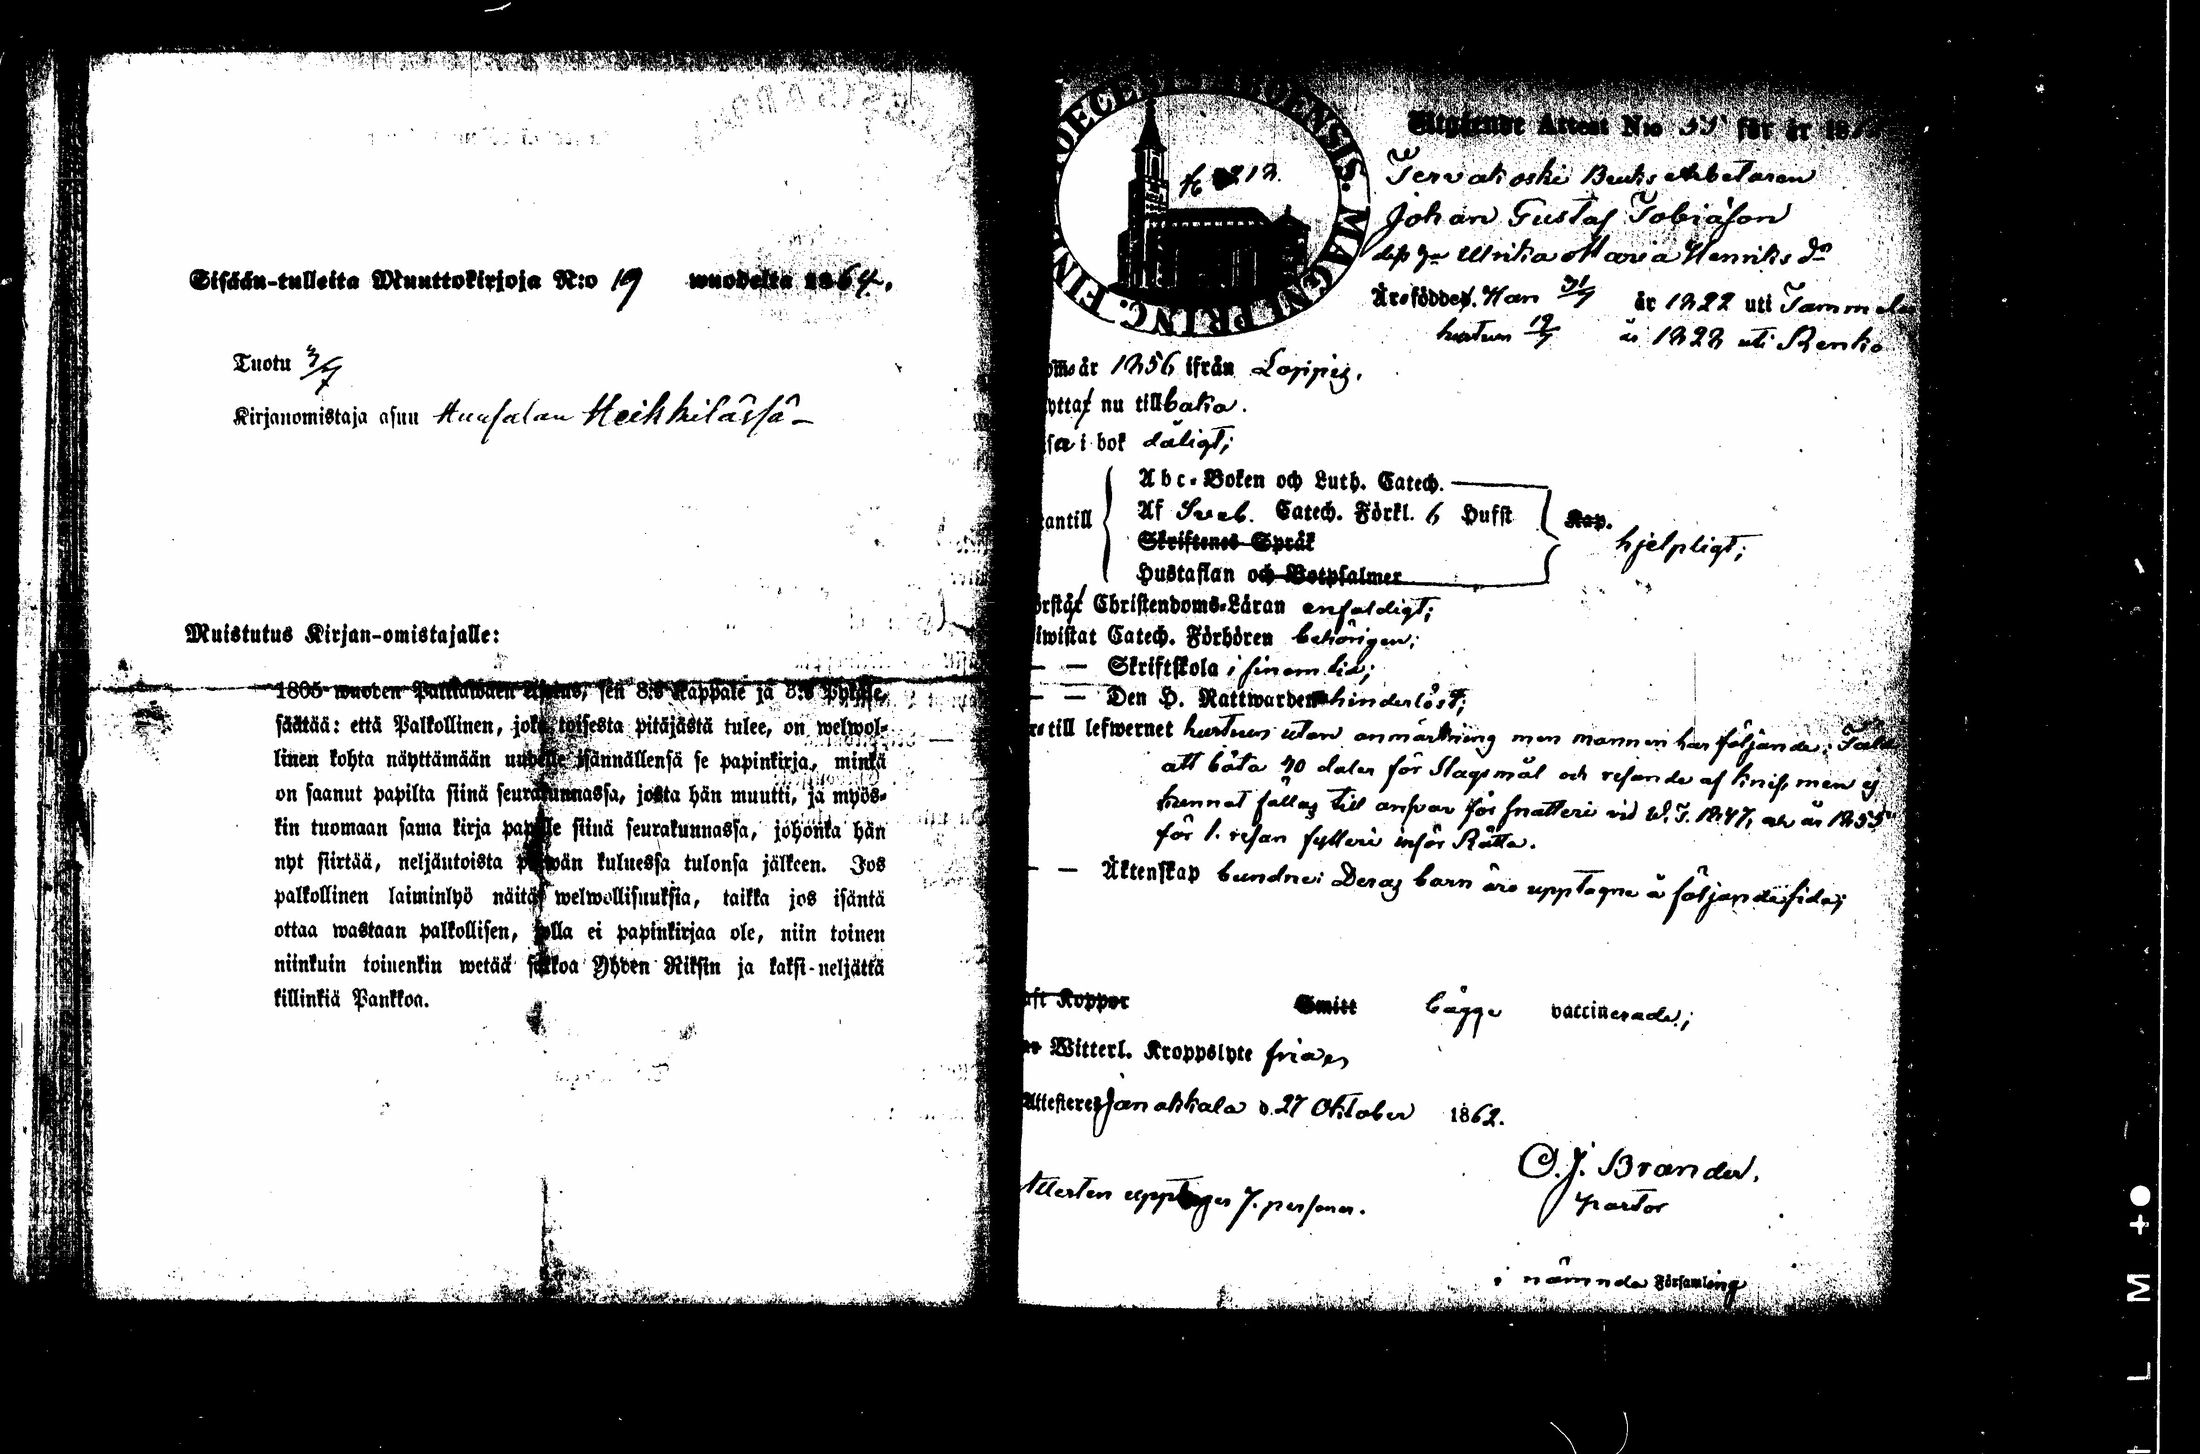 Sisään-tulleita Muuttokirjoja N:o 19 wuodelta 1864.
Tuotu 3/7
Kirjanomistaja asuu Heikkilässä
Muistutus Kirjan-omistajalle:
1805 wuoden Palkawäen sen 8:s Kappale ja 8:s
säätää: että Palkollinen, joka toisesta pitäjästä tulee, on welwol-
linen kohta näyttämään uudelle isännällensä se papinkirja, minkä
on saanut papilta siinä seurakunnassa, josta hän muutti, ja myös-
kin tuomaan sama kirja papille siinä seurakunnassa, johonka hän
nyt siirtää, neljäntoista päiwän kuluessa tulonsa jälkeen. Jos
palkollinen laiminlyö näitä welwollisuuksia, taikka jos isäntä
ottaa wastaan palkollisen, jolla ei papinkirjaa ole, niin toinen
niinkuin toinenkin wetää sakkoa Yhden Riksin ja kaksi-neljättä
killinkiä Pankkoa.
ABOENSIS. MAGNI PRINC. FIN
Utgående Attest N:o 55 för år 18
Terwakoski Bruks Arbetaren
Johan Gustaf Tobiasson
och h:u Ulrika Maria Henriks d:r
Äro födde. Han 31/7 år 1822 uti Tammela
hustrun 19/7 år 1828 uti Renko
år 1856 ifrån Loppis.
nu tillbaka.
i bok dåligt;
Abc-Boken och Luth. Catech.
Af Sveb. Catech. Förkl. 6 Hufst Kap.
antill hjelpligt;
Skriftenes Språk
Hustaflan och Botpsalmer
Christendoms-Läran enfaldigt;
Catech. Förhören behörigen;
— — Skriftskola i sinom tid;
— — Den H. Nattwarden hinderlöst;
till lefwernet hustrun utan anmärkning men mannen har följande: Fäld
att böta 40 daler för slagsmål och resande af knif, men ej
kunnat fällas till ansvar för snatteri vid W. T. 1847, och år 1855
för 1. resan fylleri inför Rätta.
— — Äktenskap bundne; Deras barn äro upptagne å följande sida;
haft Koppor Smitt bägge vaccinerade;
Witterl. Kroppslyte fria,
Attesteres Janakkala d. 27 Oktober 1862.
O. J. Brander.
pastor
Attesten upptager 7. personer.
i nämnda Församling